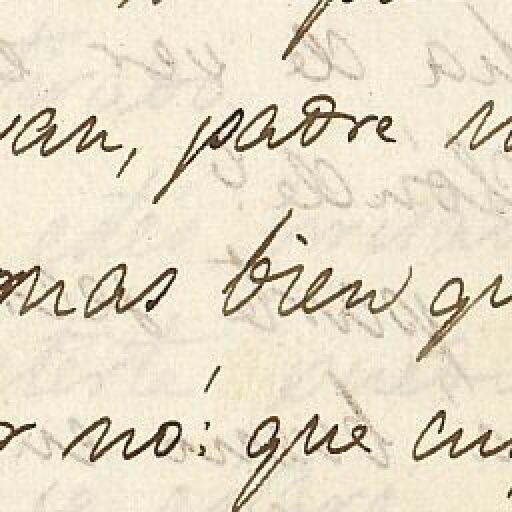 van, padre
mas bien qu
r nó: que cu